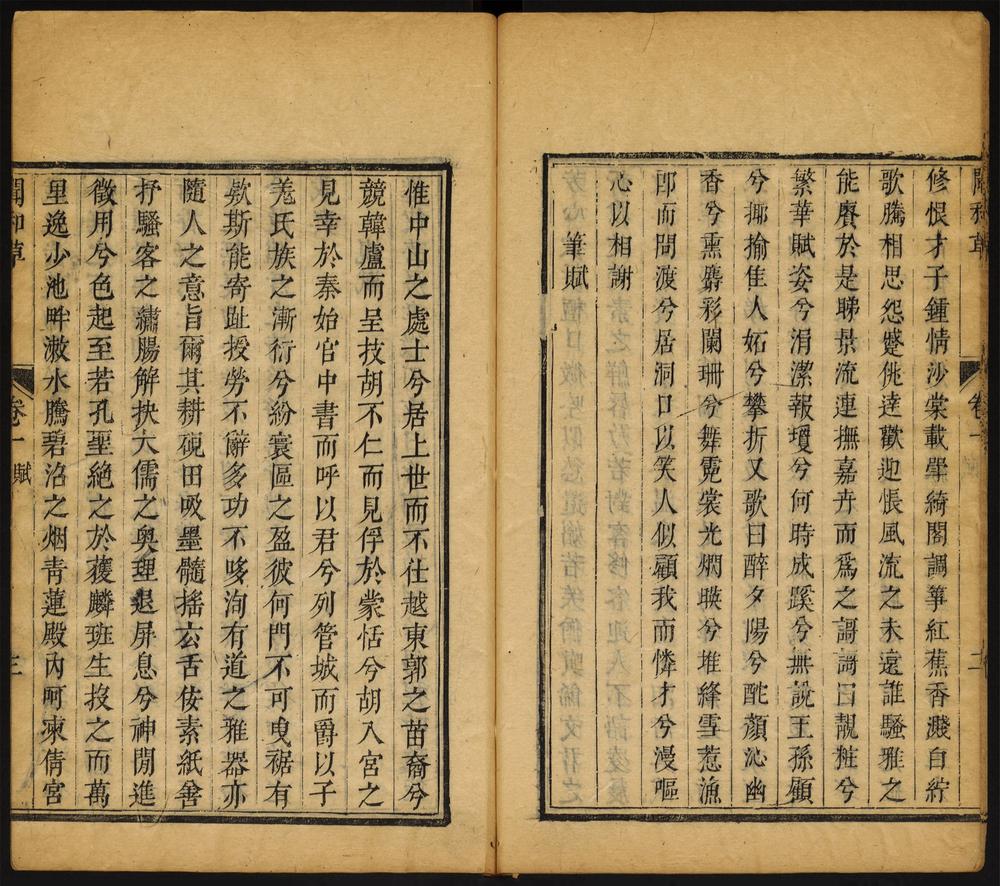 卷一 二
修恨才子鍾情沙棠載舉綺閣調箏紅蕉香濺自紵
歌騰相思怨蹙佻達歡迎悵風流之未遠誰騷雅之
能賡於是睇景流連撫嘉卉而爲之謌謌曰靚粧兮
繁華賦姿兮涓潔報瓊兮何時成蹊兮無說王孫顧
兮揶揄佳人妬兮攀折又歌曰醉夕陽兮酡顏沁幽
香兮熏麝彩闌珊兮舞霓裳光燜暎兮堆絳雪惹漁
郎而問渡兮居洞口以笑人似顧我而憐才兮漫嘔
心以相謝
筆賦
惟中山之處士兮居上世而不仕越東郭之苗裔兮
競韓盧而呈技胡不仁而見俘於蒙恬兮胡入宮之
見幸於秦始官中書而呼以君兮列管城而爵以子
羗氏族之漸衍兮紛寰區之盈彼何門不可曳裾有
欵斯能寄趾授勞不辭多功不哆洵有道之雅器亦
隨人之意旨爾其耕硯田吸墨髓搖玄舌侫素紙舍
抒騷客之繡腸解抉大儒之奥理退屏息兮神閒進
徵用兮色起至若孔聖絶之於蒦麟班生投之而萬
里逸少池畔潄水騰碧沼之烟青蓮殿內呵凍倩宮
卷一 賦 三